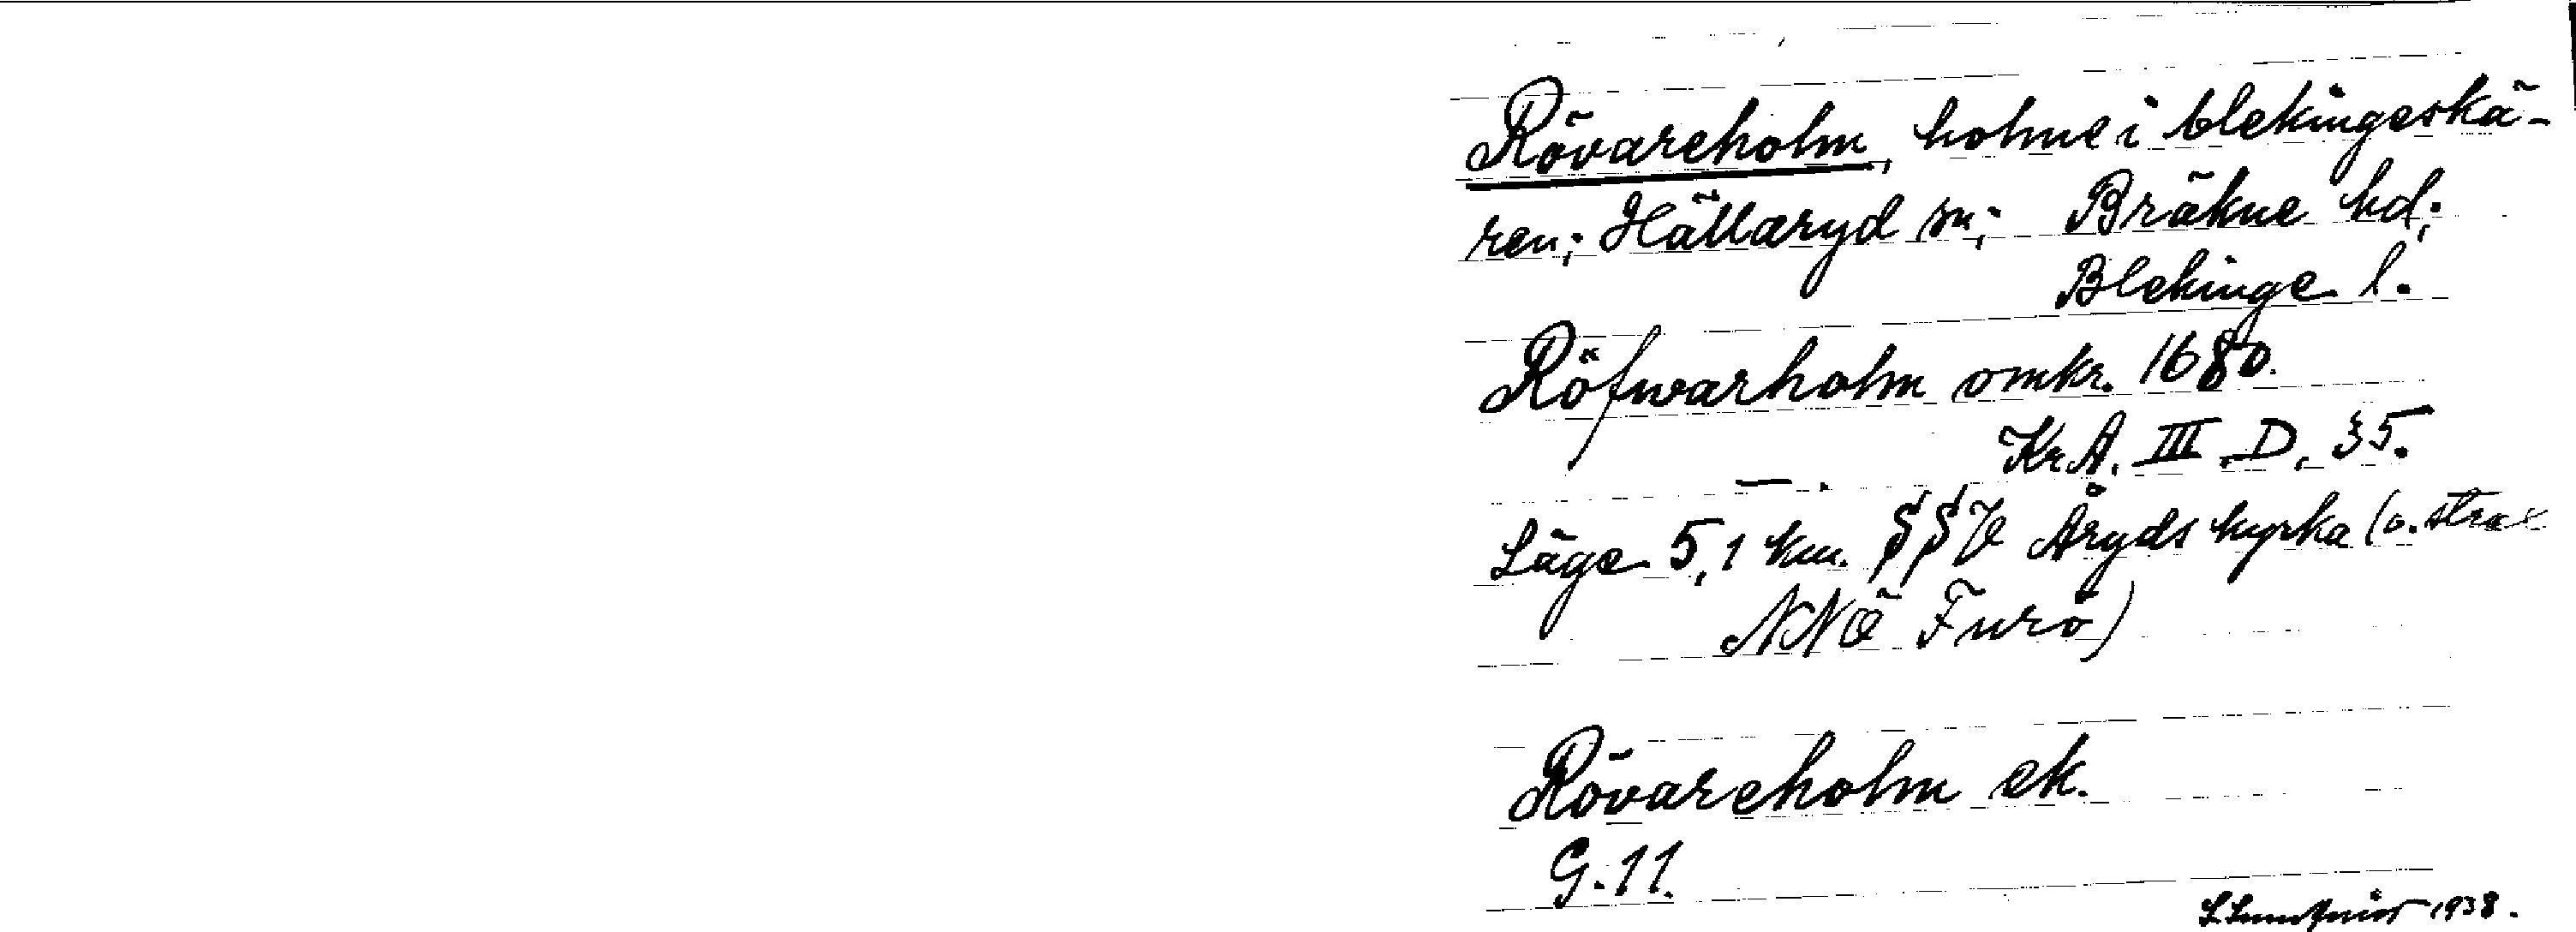 Rövareholm, holme i blekingeskä-
ren; Hällaryd sn; Bräkne hd;
Blekinge l.
Röfwarholm omkr. 1680.
Kr.A. III.D. 35.
Läge 5,1 km. SSV Åryds kyrka (o. strax
NNÖ Furö)
Rövareholm ek.
G. 11.
1938.